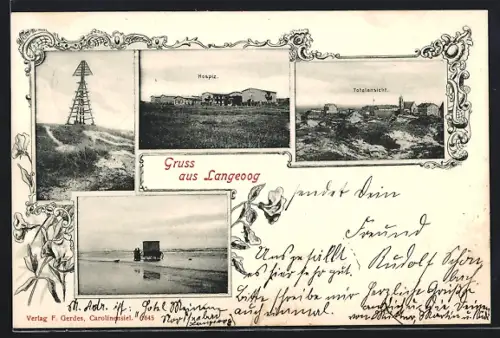 Hospiz.
Totalansicht.
Gruss
aus Langeoog
sendet Dein
Freund
Rudolf Schön
bach
Uns gefällt
es hier sehr gut.
Bitte schreibe mir
auch einmal.
Herzliche Grüsse
von Mutter, Martin u.
M. Adr. ist: Hotel
Langeoog
Verlag F. Gerdes, Carolinensiel.